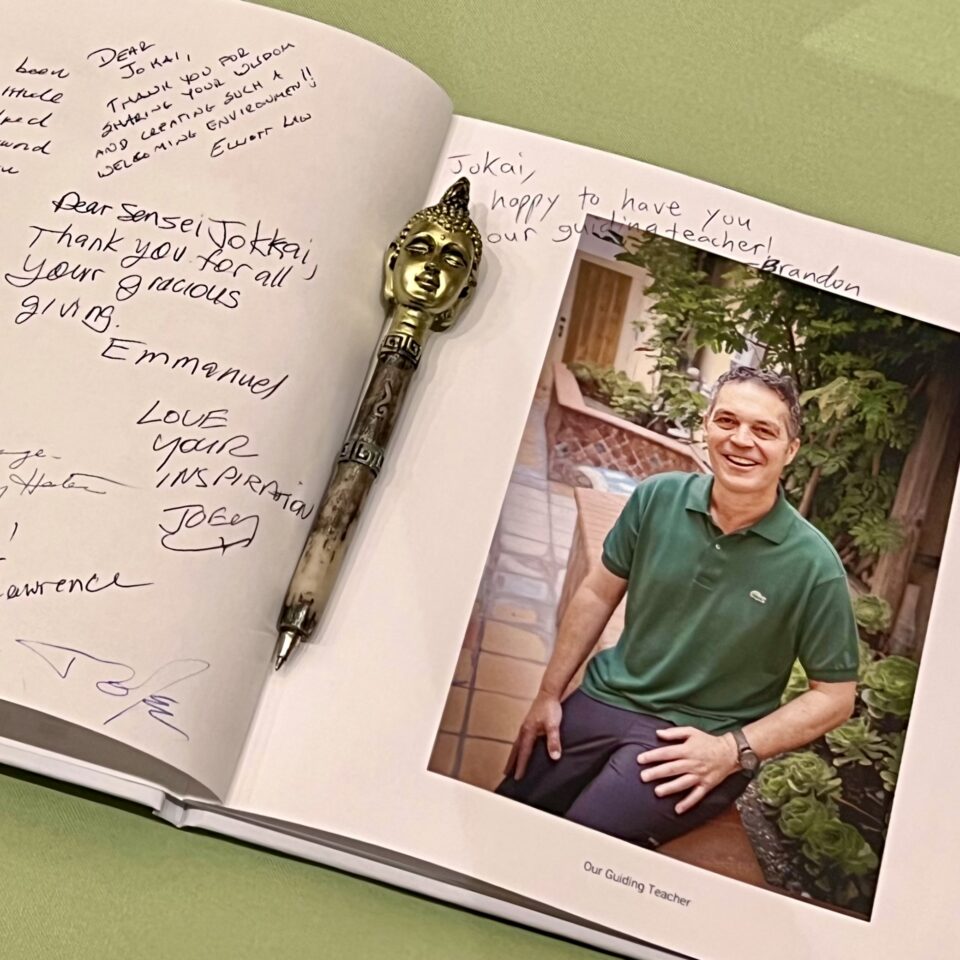 been
DEAR
JOKAI,
THANK YOU FOR
SHARING YOUR WISDOM
AND CREATING SUCH A
WELCOMING ENVIRONMENT!!
Dear Sensei Jokkai,
Thank you for all
your gracious
giving.
Emmanuel
LOVE
YOUR
INSPIRATION
JOEY
Lawrence
Jokai,
happy to have you
our guiding teacher!
Brandon
Our Guiding Teacher